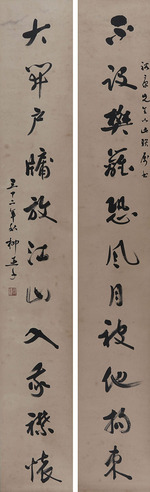 不设樊篱恐风月被他拘束
大开户牖放江山入我襟怀
五十二年秋 柳亚子